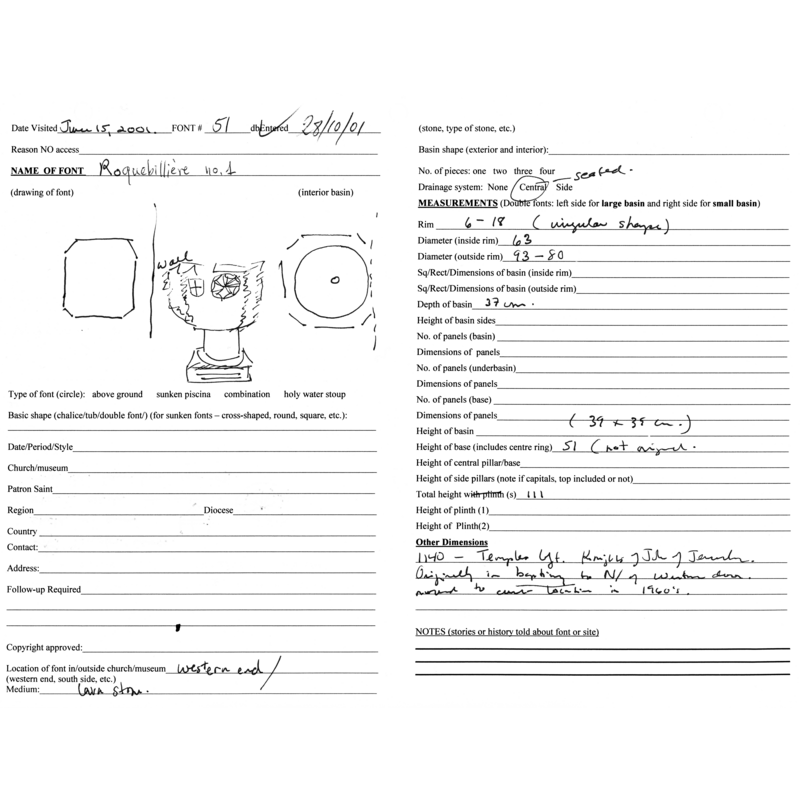 Date Visited June 15, 2001. FONT # 51 db Entered 28/10/01
Reason NO access
NAME OF FONT Roquebillière no. 1
(drawing of font) (interior basin)
wall
Type of font (circle): above ground sunken piscina combination holy water stoup
Basic shape (chalice/tub/double font/) (for sunken fonts – cross-shaped, round, square, etc.):
Date/Period/Style
Church/museum
Patron Saint
Region Diocese
Country
Contact:
Address:
Follow-up Required
Copyright approved:
Location of font in/outside church/museum western end
(western end, south side, etc.)
Medium: lava stone.
(stone, type of stone, etc.)
Basin shape (exterior and interior):
No. of pieces: one two three four sealed.
Drainage system: None Central Side
MEASUREMENTS (Double fonts: left side for large basin and right side for small basin)
Rim 6 – 18 (irregular shape)
Diameter (inside rim) 63
Diameter (outside rim) 93 – 80
Sq/Rect/Dimensions of basin (inside rim)
Sq/Rect/Dimensions of basin (outside rim)
Depth of basin 37 cm.
Height of basin sides
No. of panels (basin)
Dimensions of panels
No. of panels (underbasin)
Dimensions of panels
No. of panels (base)
Dimensions of panels
Height of basin (39 x 39 cm.)
Height of base (includes centre ring) 51 (not
Height of central pillar/base
Height of side pillars (note if capitals, top included or not)
Total height with plinth (s) 111
Height of plinth (1)
Height of Plinth(2)
Other Dimensions
1140 – Knights of of
Originally in to N/ of western door.
moved to location in 1960's.
NOTES (stories or history told about font or site)